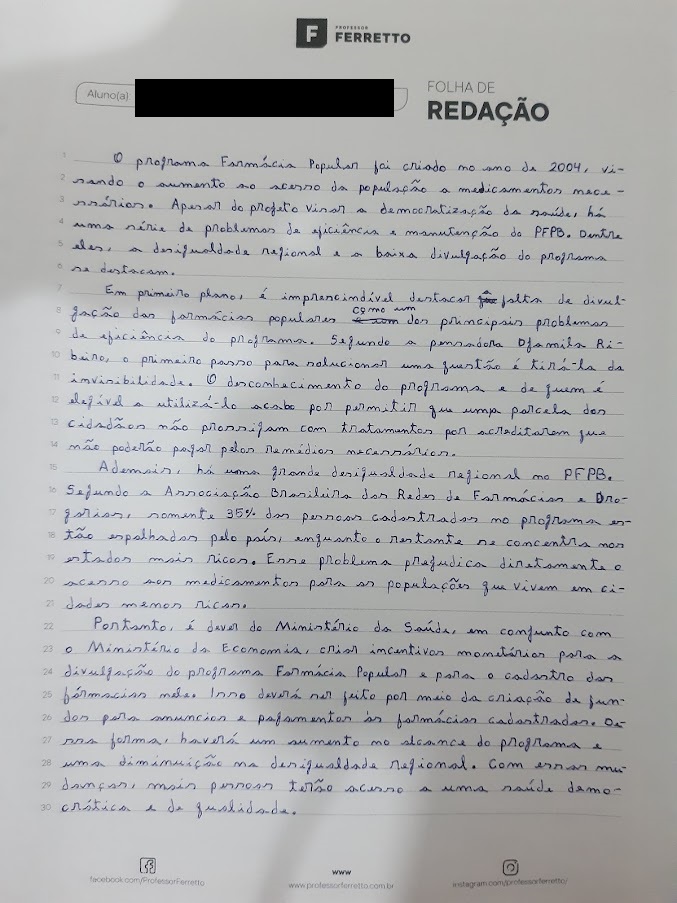 F PROFESSOR FERRETTO
Aluno(a)
FOLHA DE
REDAÇÃO
1 O programa Farmácia Popular foi criado no ano de 2004, vi-
2 sando o aumento ao acesso da população a medicamentos nece-
3 ssários. Apesar do projeto visar a democratização da saúde, há
4 uma série de problemas de eficiência e manutenção do PFPB. Dentre
5 eles, a desigualdade regional e a baixa divulgação do programa
6 se destacam.
7 Em primeiro plano, é imprencindível destacar falta de divul-
8 gação das farmácias populares como um dos principais problemas
9 de eficiência do programa. Segundo a pensadora Djamila Ri-
10 beiro, o primeiro passo para solucionar uma questão é tirá-la da
11 invisibilidade. O desconhecimento do programa e de quem é
12 elegível a utilizá-lo acaba por permitir que uma parcela dos
13 cidadãos não prossigam com tratamentos por acreditarem que
14 não poderão pagar pelos remédios necessários.
15 Ademais, há uma grande desigualdade regional no PFPB.
16 Segundo a Associação Brasileira das Redes de Farmácias e Dro-
17 garias, somente 35% das pessoas cadastradas no programa es-
18 tão espalhadas pelo país, enquanto o restante se concentra nos
19 estados mais ricos. Esse problema prejudica diretamente o
20 acesso aos medicamentos para as populações que vivem em ci-
21 dades menos ricas.
22 Portanto, é dever do Ministério da Saúde, em conjunto com
23 o Ministério da Economia, criar incentivos monetários para a
24 divulgação do programa Farmácia Popular e para o cadastro das
25 fármacias nele. Isso deverá ser feito por meio da criação de fun-
26 dos para anuncios e pagamentos às farmácias cadastradas. De-
27 ssa forma, haverá um aumento no alcance do programa e
28 uma diminuição na desigualdade regional. Com essas mu-
29 danças, mais pessoas terão acesso a uma saúde demo-
30 crática e de qualidade.
facebook.com/ProfessorFerretto
www
www.professorferretto.com.br
instagram.com/professorferretto/